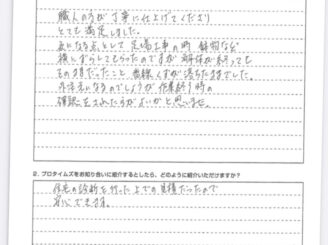 職人の方が丁寧に仕上げてくださり
とても満足しました。
気になる点として足場工事の時 鉢物など
横にずらしてもらったのですが解体が終っても
そのままだったこと 番線くずが落ちたままでした。
外注先になるのでしょうが作業終り時の
確認をされた方がよいかと思います。
2. プロタイムズをお知り合いに紹介するとしたら、どのように紹介いただけますか?
住宅の診断を行った上での見積だったので
安心できます。